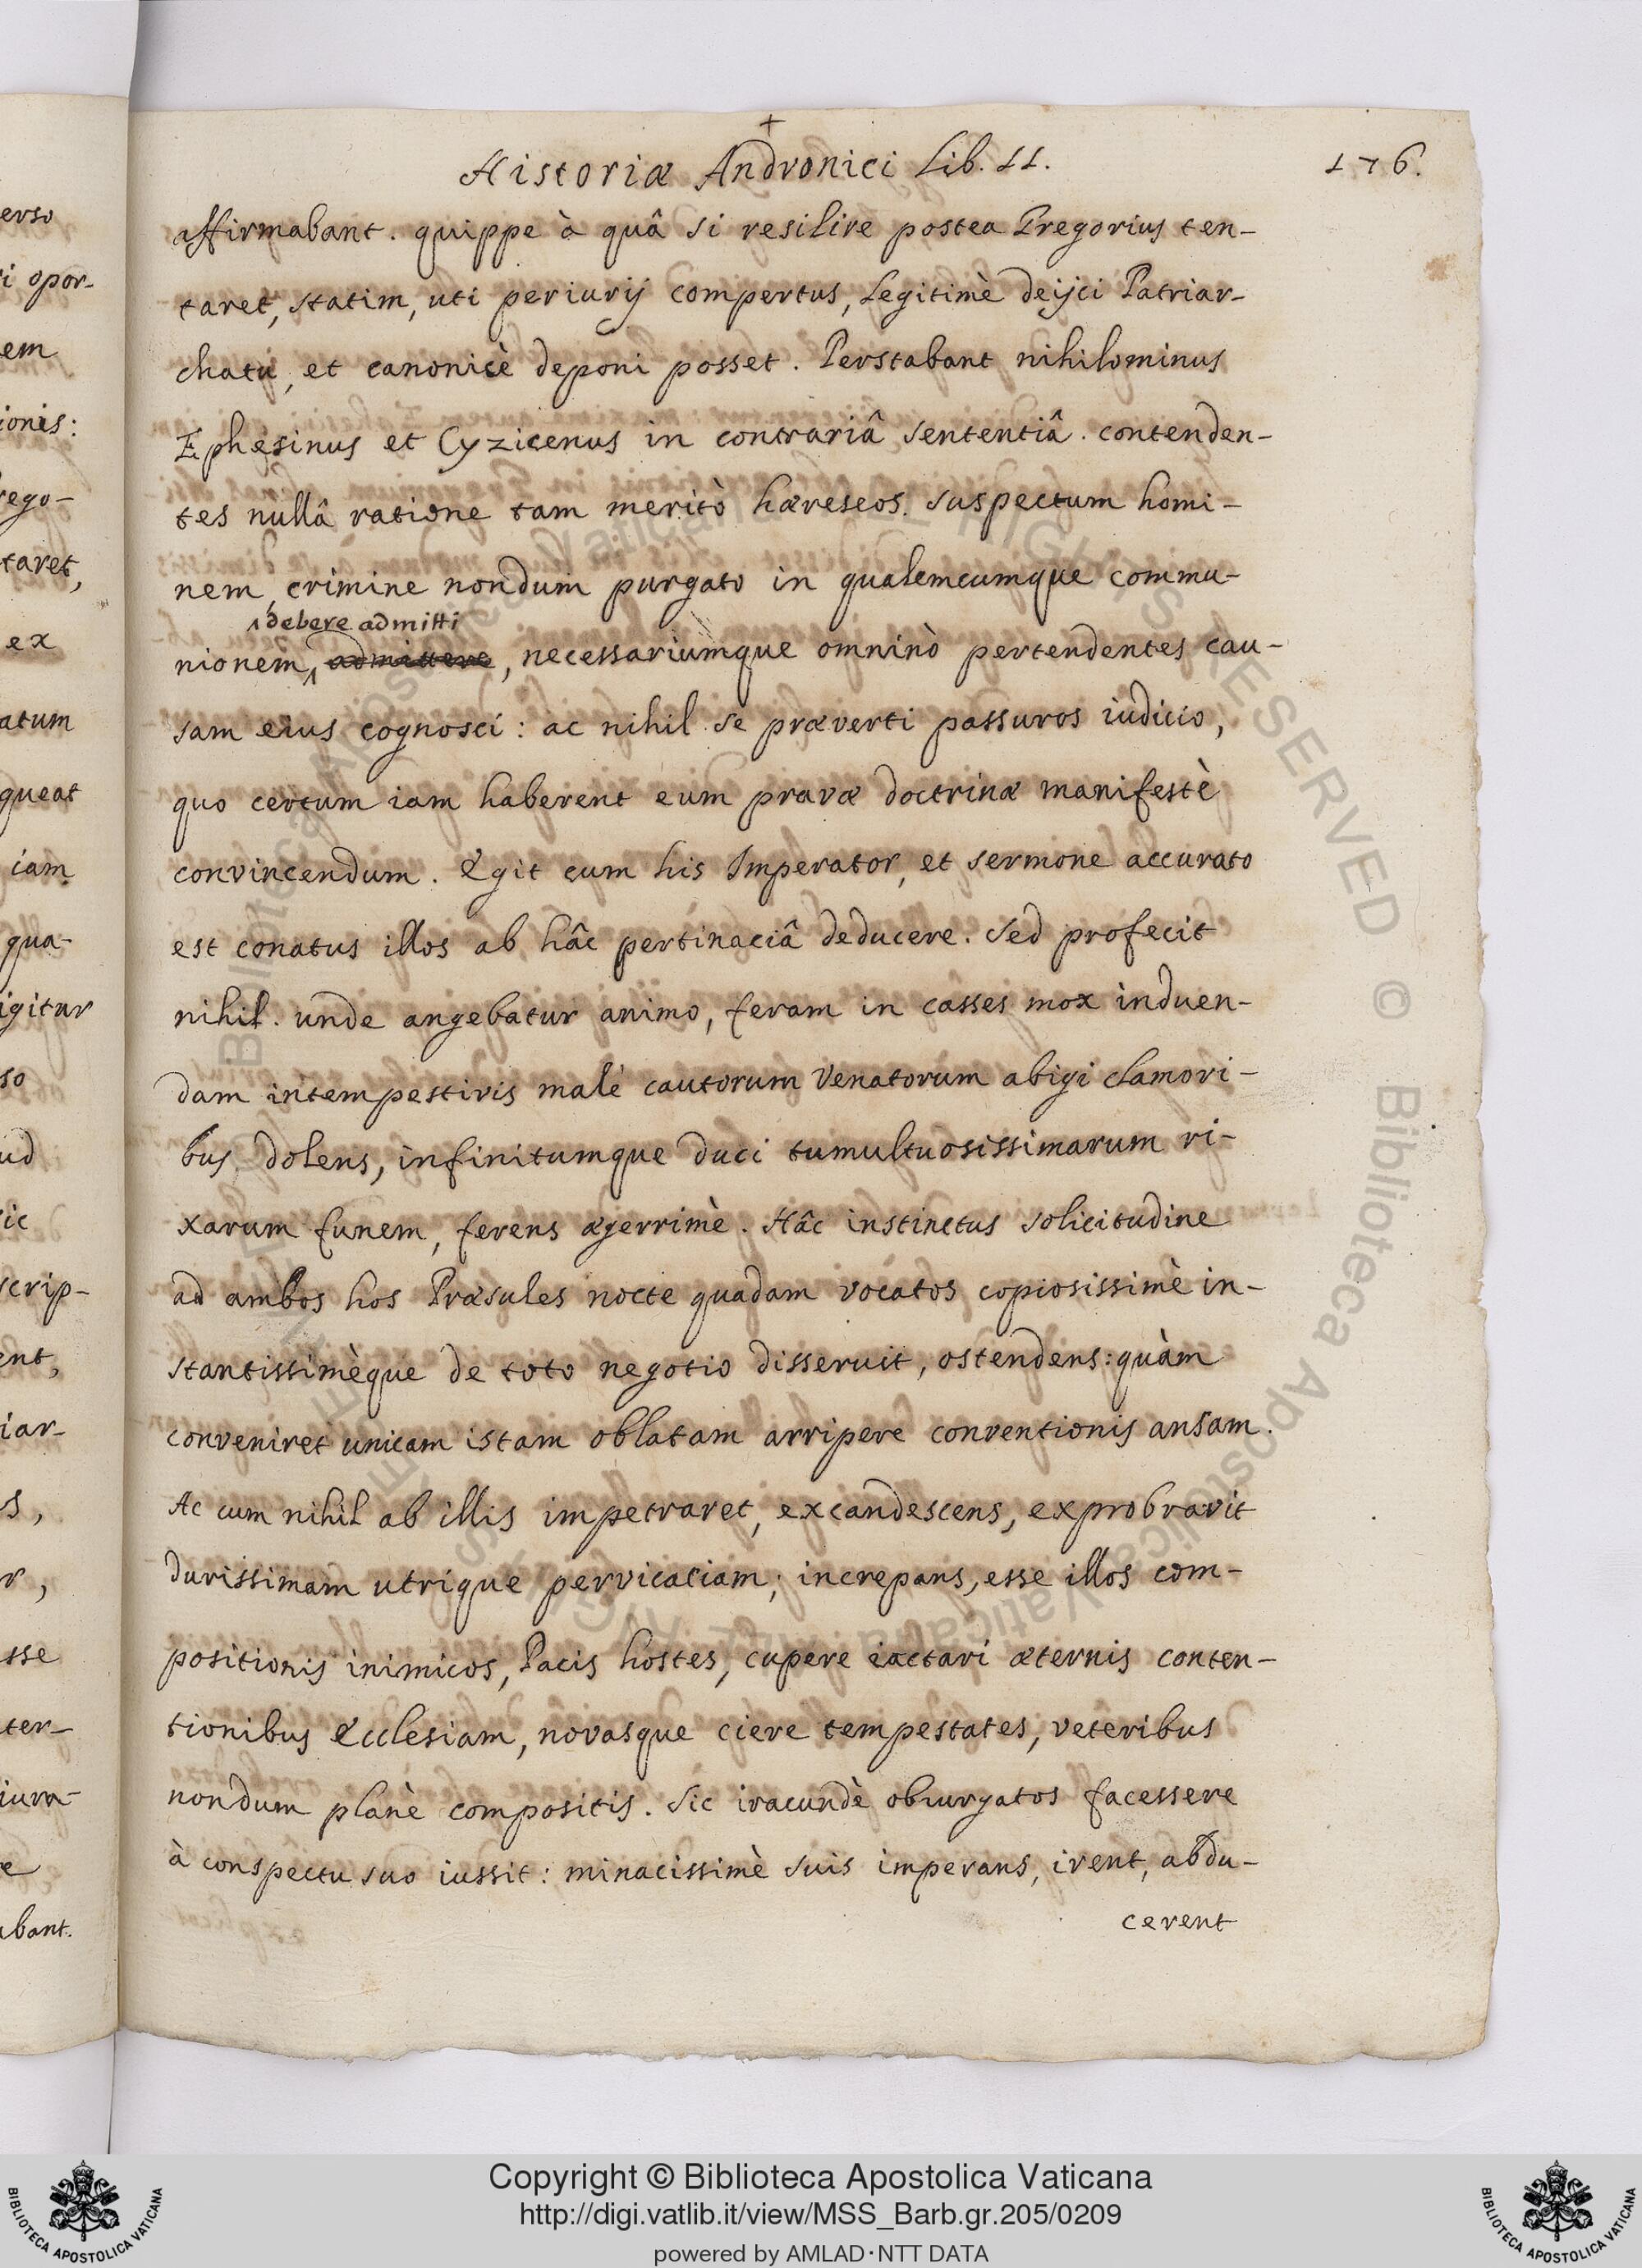 +
Historiæ Andronici Lib. 11.
176.
affirmabant. quippe à quâ si resilire postea Gregorius ten-
taret, statim, uti periurij compertus, Legitimè deijci Patriar-
chatu, et canonicè deponi posset. Perstabant nihilominus
Ephesinus et Cyzicenus in contrariâ sententiâ. contenden-
tes nullâ ratione tam meritò hæreseos suspectum homi-
nem, crimine nondum purgato in qualemcumque commu-
debere admitti
nionem, admittere, necessariumque omninò pertendentes cau-
sam eius cognosci: ac nihil se præverti passuros iudicio,
quo certum iam haberent eum pravæ doctrinæ manifestè
convincendum. Egit cum his Imperator, et sermone accurato
est conatus illos ab hâc pertinaciâ deducere. Sed profecit
nihil. unde angebatur animo, feram in casses mox induen-
dam intempestivis malè cautorum Venatorum abigi clamori-
bus dolens, infinitumque duci tumultuosissimarum ri-
xarum funem, ferens ægerrimè. Hâc instinctus solicitudine
ad ambos hos Præsules nocte quadam vocatos copiosissimè in-
stantissimèque de toto negotio disseruit, ostendens: quàm
conveniret unicam istam oblatam arripere conventionis ansam.
Ac cum nihil ab illis impetraret, excandescens, exprobravit
durissimam utrique pervicaciam; increpans, esse illos com-
positionis inimicos, Pacis hostes, cupere iactari æternis conten-
tionibus Ecclesiam, novasque ciere tempestates, veteribus
nondum planè compositis. Sic iracundè obiurgatos facessere
à conspectu suo iussit: minacissimè suis imperans, irent, abdu-
cerent
erso
i opor-
em
ionis:
rego-
taret,
ex
atum
queat
iam
qua-
igitur
so
ud
ic
scrip-
ent,
iar-
s,
r,
sse
ter-
iura-
e
abant.
Copyright © Biblioteca Apostolica Vaticana
http://digi.vatlib.it/view/MSS_Barb.gr.205/0209
powered by AMLAD·NTT DATA
BIBLIOTECA APOSTOLICA VATICANA
BIBLIOTECA APOSTOLICA VATICANA